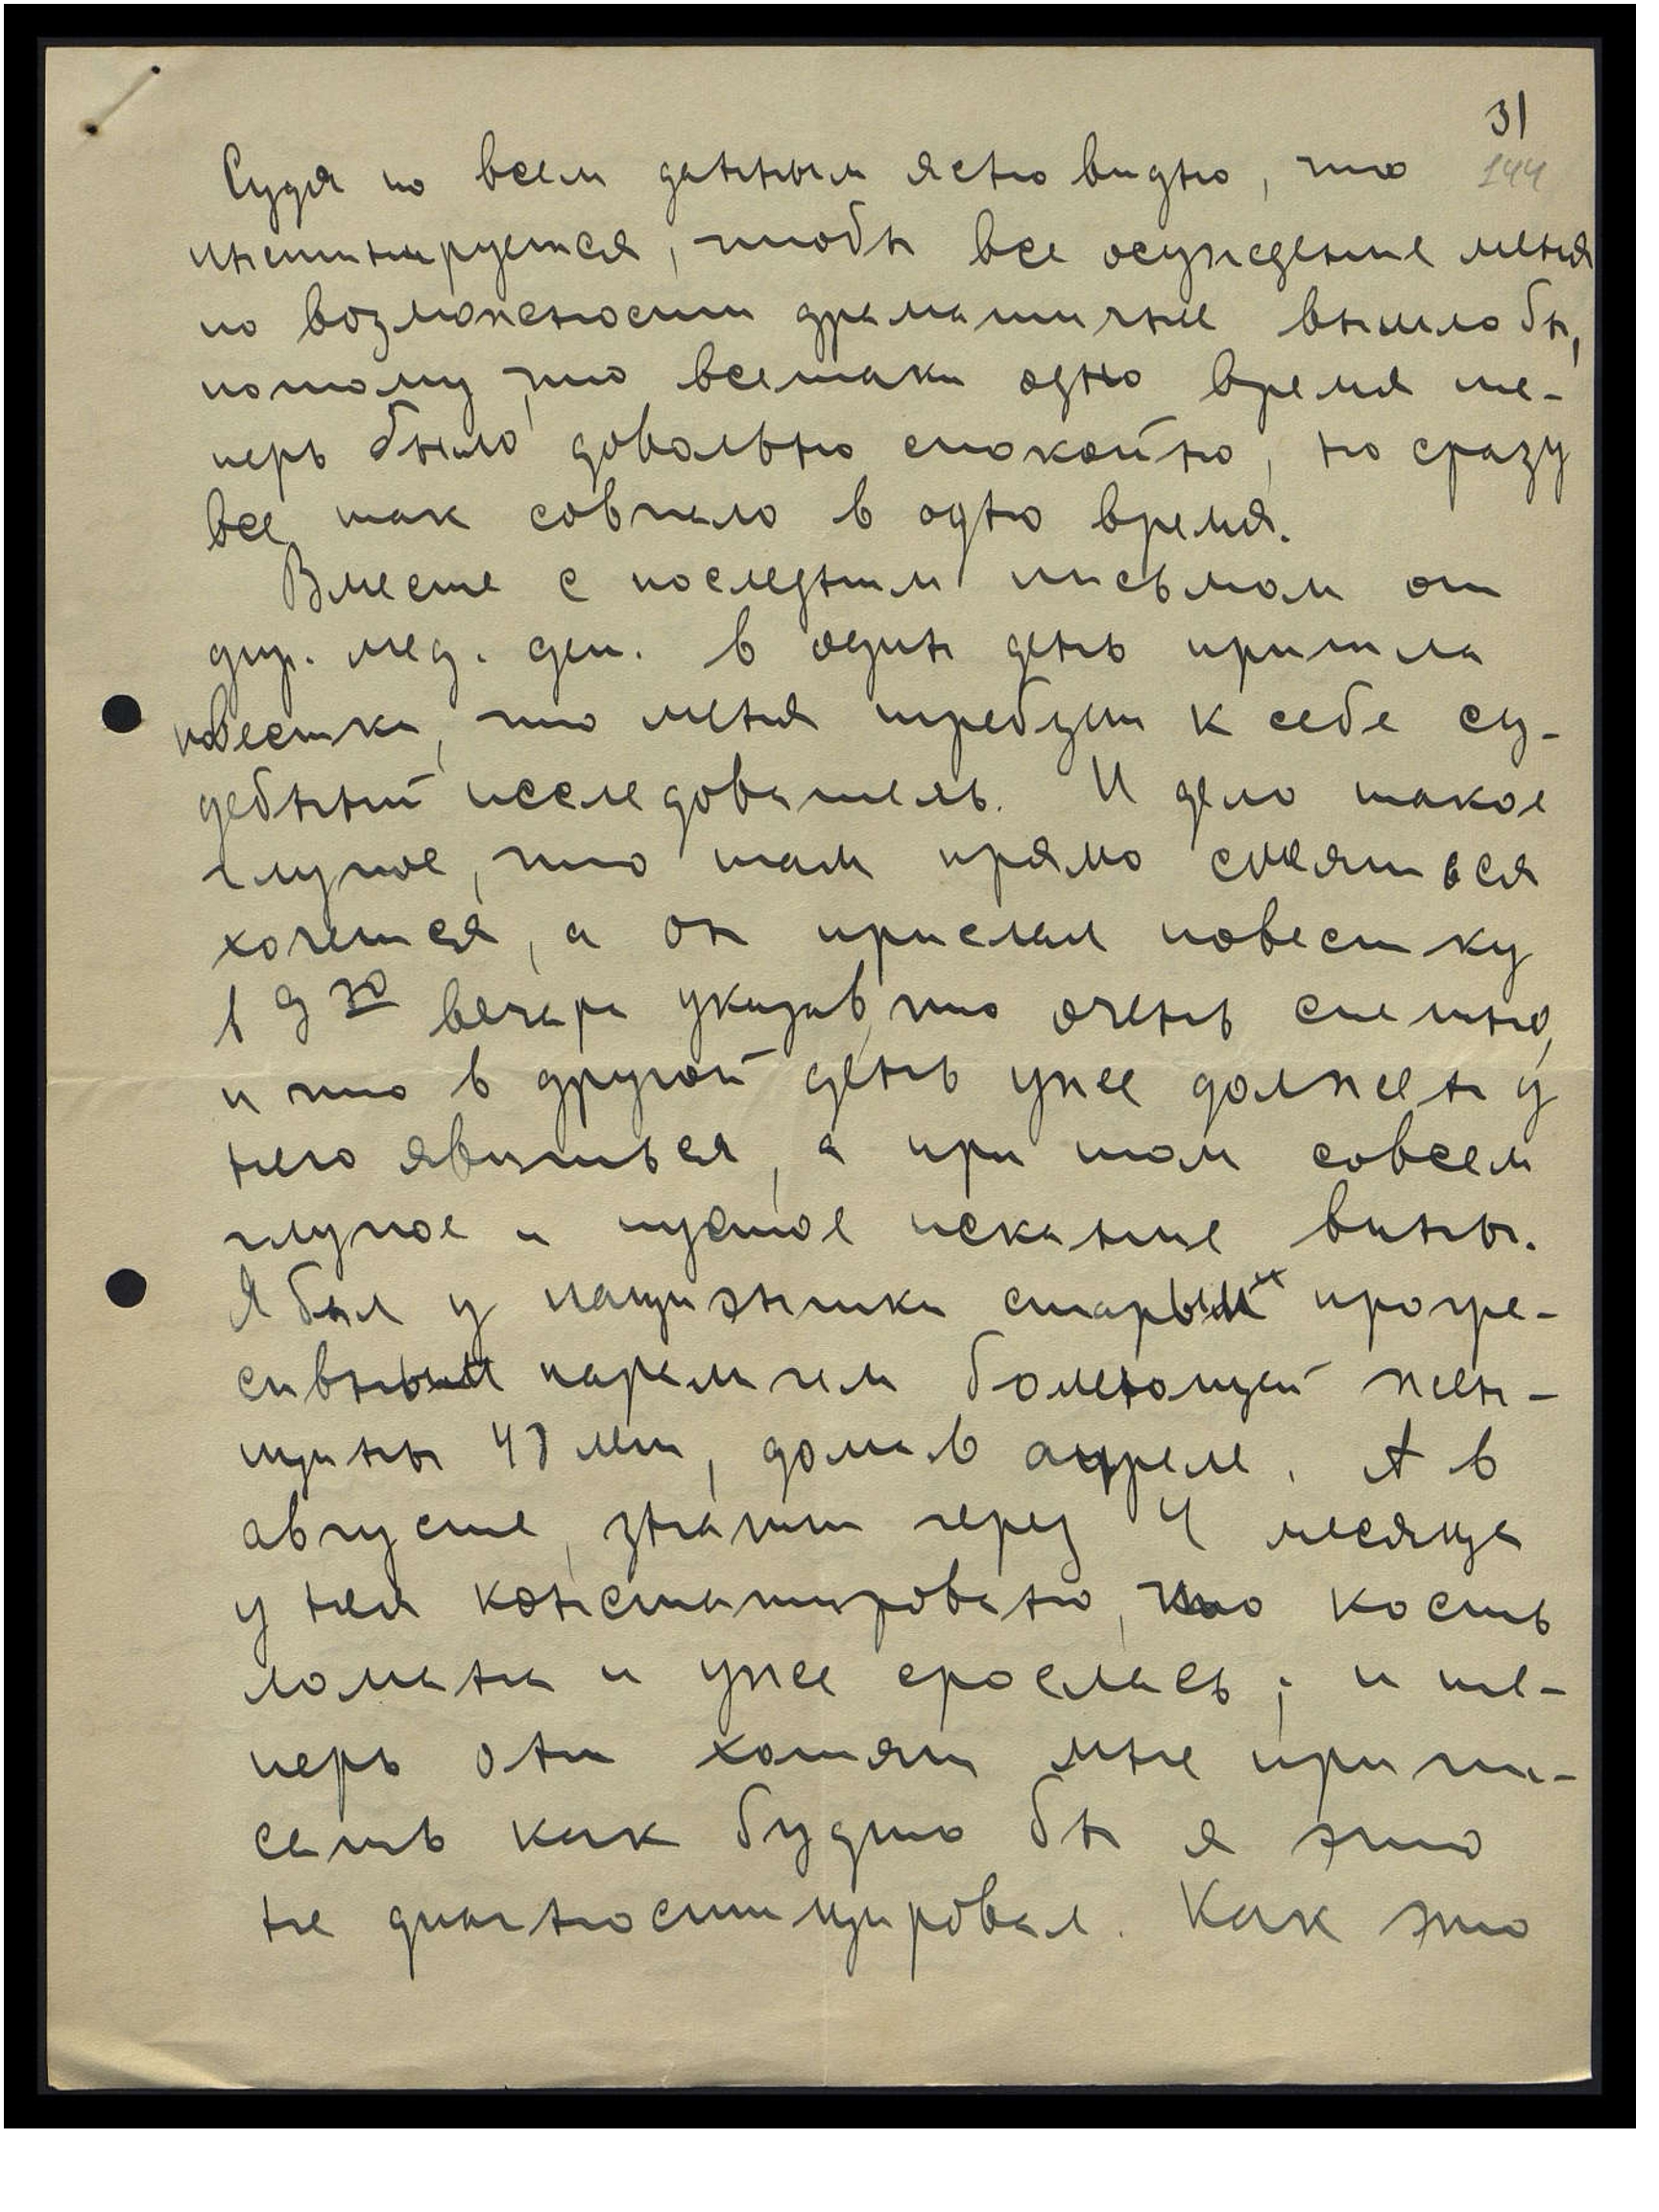 31
144
Судя по всем данным ясно видно, что
инсценируется, чтобы все осуждение меня
по возможности драматичнее вышло бы,
потому что всетаки одно время те-
перь было довольно спокойно, но сразу
все так совпало в одно время.
Вместе с последним письмом от
дир. мед. деп. в один день пришла
повестка, что меня требует к себе су-
дебный исследователь. И дело такое
глупое, что там прямо смеяться
хочется, а он прислал повестку
в 9 30 вечера указав, что очень спешно,
и что в другой день уже должен у
него явиться, а при том совсем
глупое и пустое искание вины.
Я был у пациэнтки старым прогре-
сивным параличем болеющей жен-
щины 48 лет, дома в апреле. А в
августе, значит через 4 месяца
у нея констатировано, что кость
ломана и уже срослась; и те-
перь они хотят мне припи-
сать как будто бы я это
не диагностицировал. Как это